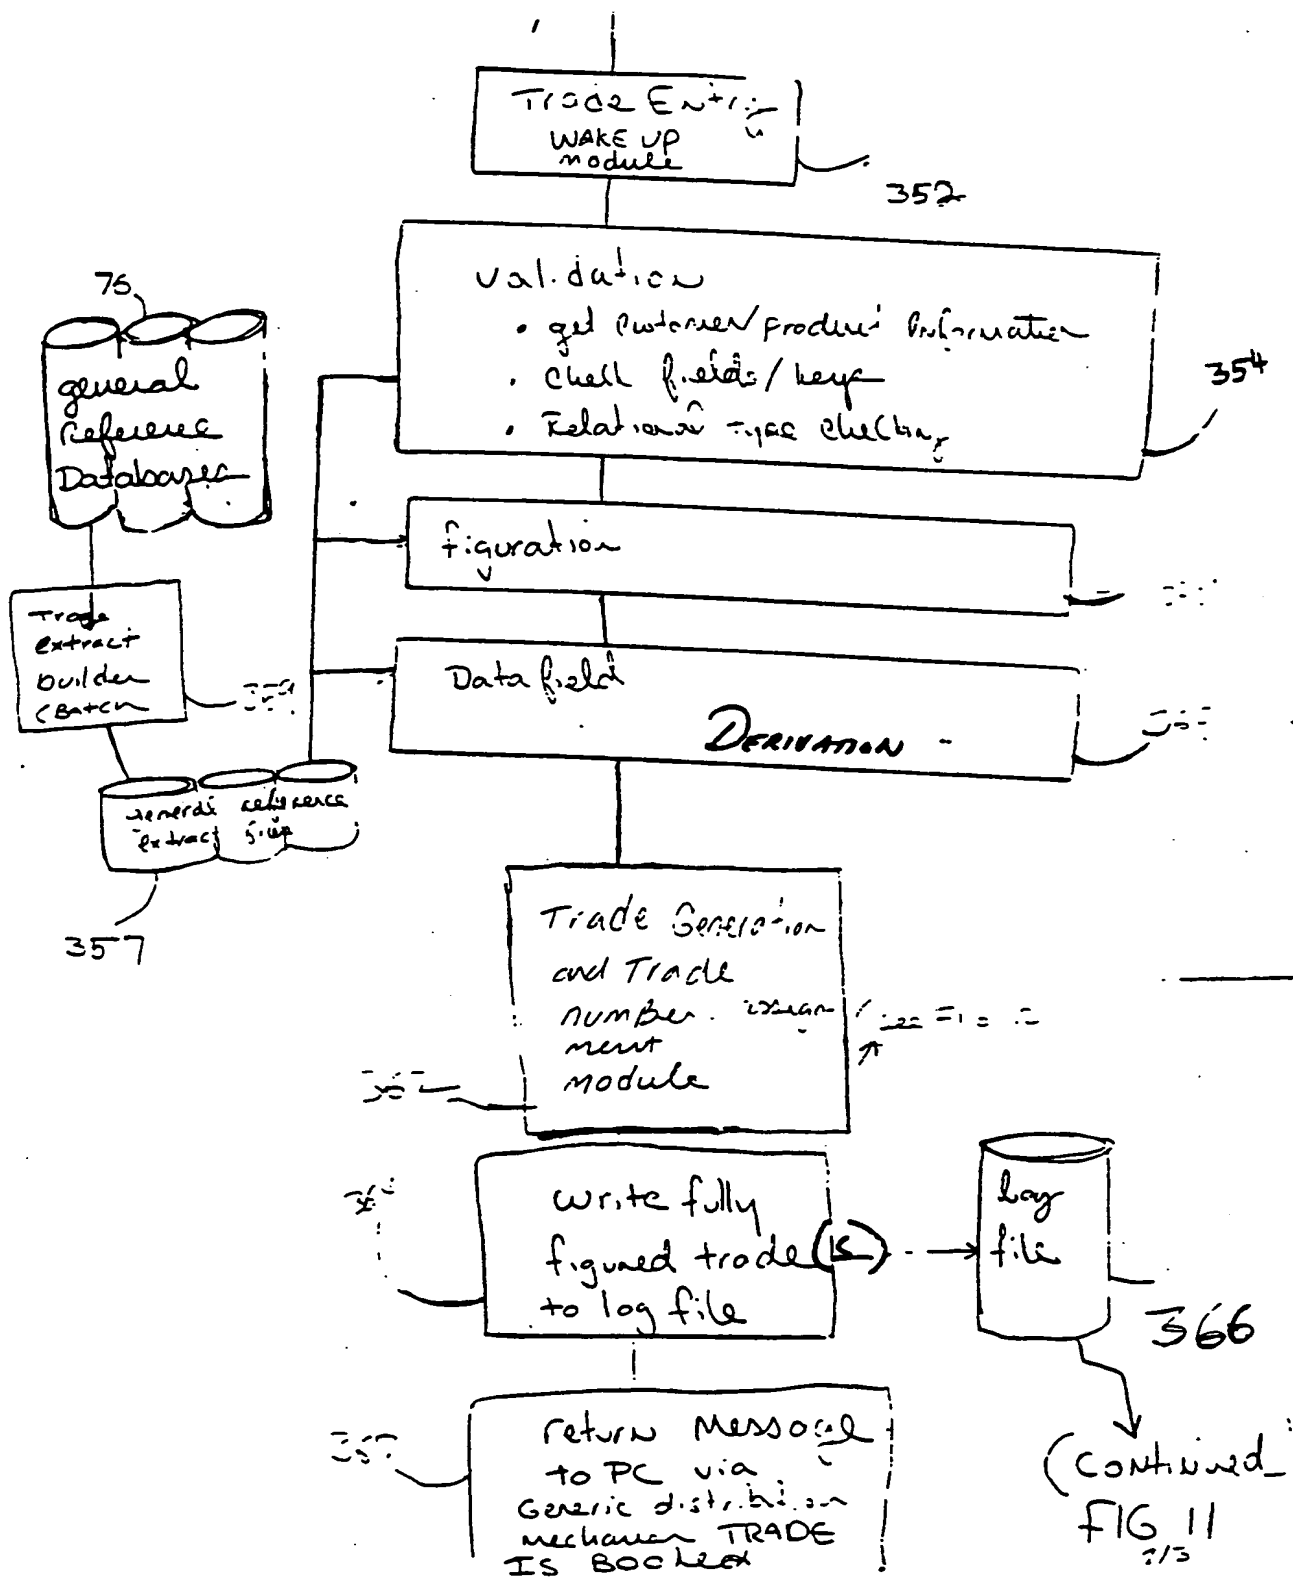 Trade Entry
WAKE UP
module
352
Validation
• get Customer/product Information
• Check fields/keys
• Relation Type Checking
354
76
general
Reference
Databases
figuration
Trade
extract
builder
(Batch
359
Data field
DERIVATION -
General reference
extract files
357
Trade Generation
and Trade
number assign
ment
module
Write fully
figured trade(s)
to log file
log
file
366
return Message
to PC via
Generic distribution
mechanism TRADE
IS BOOKED
(Continued
FIG 11